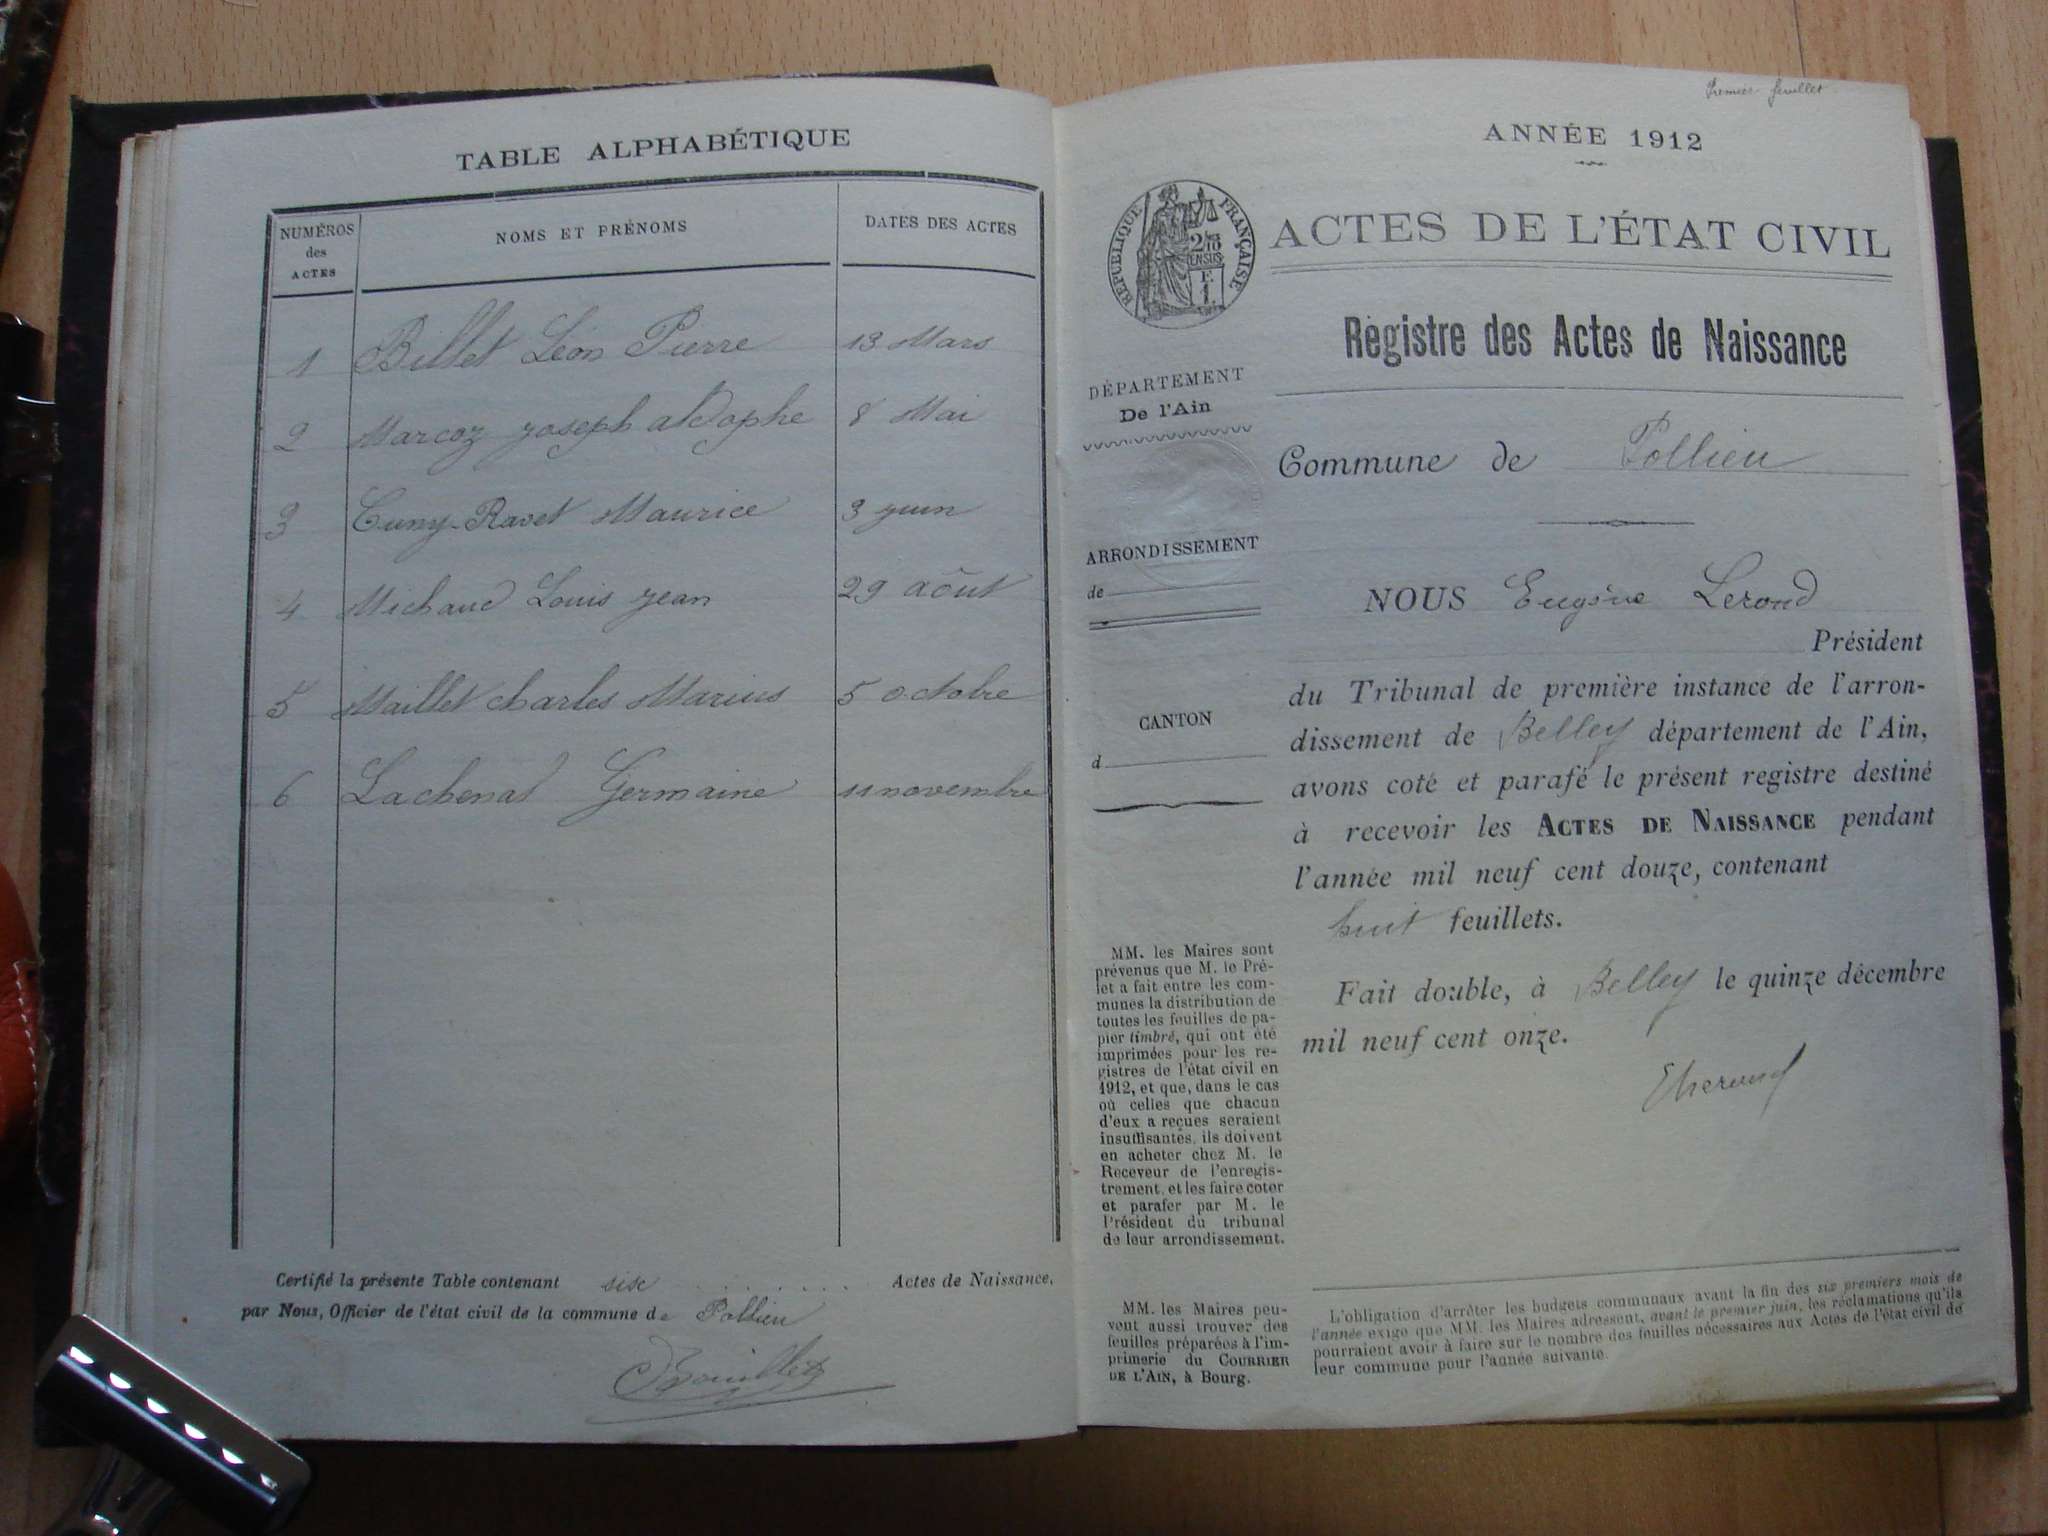 TABLE ALPHABÉTIQUE
NUMÉROS des ACTES
NOMS ET PRÉNOMS
DATES DES ACTES
1 Billet Léon Pierre 13 Mars
2 Marcoz joseph aldophe 8 Mai
3 Cuny-Ravet Maurice 3 juin
4 Michaud Louis jean 29 août
5 Maillet charles Marius 5 octobre
6 Lachenal Germaine 11 novembre
Certifié la présente Table contenant sise Actes de Naissance.
par Nous, Officier de l'état civil de la commune de Pollieu
Premier feuillet
ANNÉE 1912
RÉPUBLIQUE FRANÇAISE
2/10 EN SUS
F
1
ACTES DE L'ÉTAT CIVIL
Registre des Actes de Naissance
DÉPARTEMENT
De l'Ain
Commune de Pollieu
ARRONDISSEMENT
de
CANTON
d
NOUS Eugène Lerond
Président
du Tribunal de première instance de l'arron-
dissement de Belley département de l'Ain,
avons coté et parafé le présent registre destiné
à recevoir les ACTES DE NAISSANCE pendant
l'année mil neuf cent douze, contenant
huit feuillets.
Fait double, à Belley le quinze décembre
mil neuf cent onze.
MM. les Maires sont
prévenus que M. le Pré-
fet a fait entre les com-
munes la distribution de
toutes les feuilles de pa-
pier timbré, qui ont été
imprimées pour les re-
gistres de l'état civil en
1912, et que, dans le cas
où celles que chacun
d'eux a reçues seraient
insuffisantes, ils doivent
en acheter chez M. le
Receveur de l'enregis-
trement, et les faire coter
et parafer par M. le
Président du tribunal
de leur arrondissement.
MM. les Maires peu-
vent aussi trouver des
feuilles préparées à l'im-
primerie du COURRIER
DE L'AIN, à Bourg.
L'obligation d'arrêter les budgets communaux avant la fin des six premiers mois de
l'année exige que MM. les Maires adressent, avant le premier juin, les réclamations qu'ils
pourraient avoir à faire sur le nombre des feuilles nécessaires aux Actes de l'état civil de
leur commune pour l'année suivante.